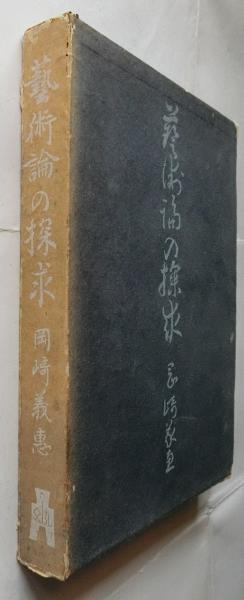 藝術論の探求
岡崎義惠
藝術論の探求
岡崎義惠